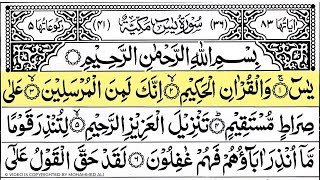 اٰیاتها ٨٣ (٣٦) سُوْرَةُ يٰسٓ مَكِّيَّةٌ (٤١) رکوعاتها ٥
بِسْمِ اللّٰهِ الرَّحْمٰنِ الرَّحِيْمِ
يٰسٓ ۝١ وَالْقُرْاٰنِ الْحَكِيْمِ ۝٢ اِنَّكَ لَمِنَ الْمُرْسَلِيْنَ ۝٣ عَلٰى
صِرَاطٍ مُّسْتَقِيْمٍ ۝٤ تَنْزِيْلَ الْعَزِيْزِ الرَّحِيْمِ ۝٥ لِتُنْذِرَ قَوْمًا
مَّاۤ اُنْذِرَ اٰبَآؤُهُمْ فَهُمْ غٰفِلُوْنَ ۝٦ لَقَدْ حَقَّ الْقَوْلُ عَلٰۤى
VIDEO IS COPYRIGHTED BY MOHAMMED ALI